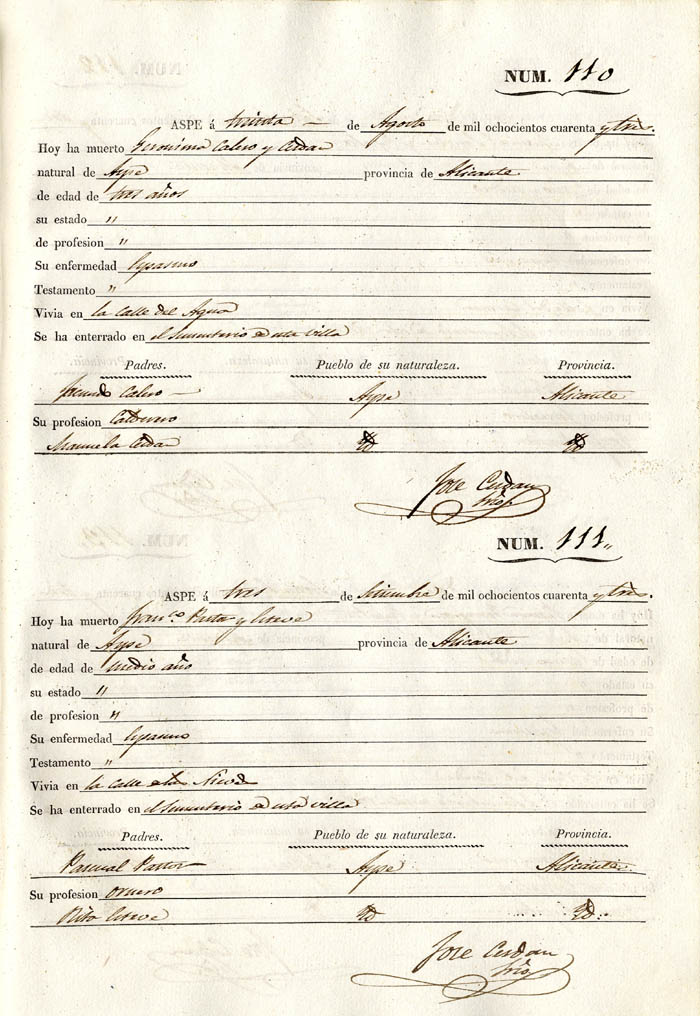 NUM. 110
ASPE á treinta de Agosto de mil ochocientos cuarenta y tres.
Hoy ha muerto Geronima Calero y Cerdan
natural de Aspe provincia de Alicante
de edad de tres años
su estado "
de profesion "
Su enfermedad
Testamento "
Vivia en la Calle del Agua
Se ha enterrado en el Sementerio de esta villa
Padres. Pueblo de su naturaleza. Provincia.
Calero Aspe Alicante
Su profesion
Manuela Cerdan Yd Yd
Jose Cerdan
Srio
NUM. 111"
ASPE á tres de Setiembre de mil ochocientos cuarenta y tres.
Hoy ha muerto Fran.co Pastor y Esteve
natural de Aspe provincia de Alicante
de edad de medio año
su estado "
de profesion "
Su enfermedad
Testamento "
Vivia en la Calle
Se ha enterrado en el Sementerio de esta villa
Padres. Pueblo de su naturaleza. Provincia.
Pascual Pastor Aspe Alicante
Su profesion
Rita Esteve Yd Yd
Jose Cerdan
Srio